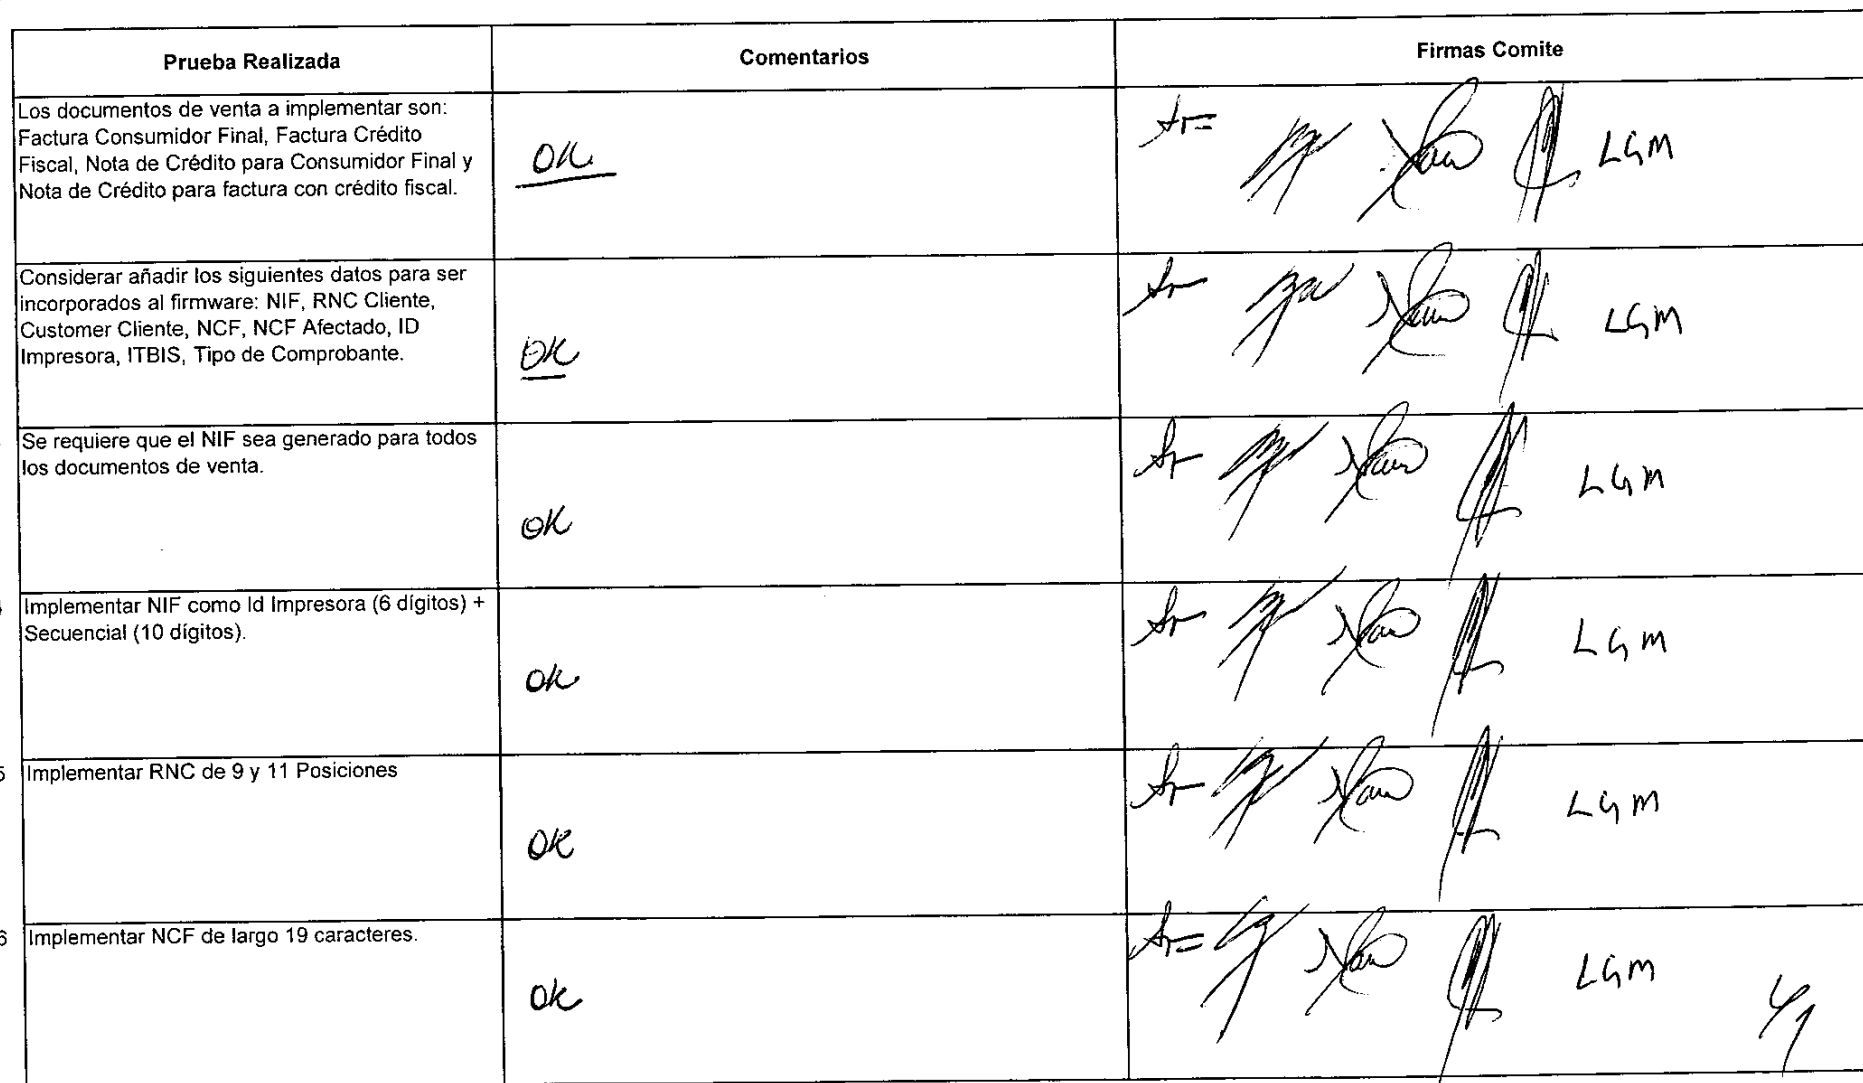 Prueba Realizada
Comentarios
Firmas Comite
Los documentos de venta a implementar son:
Factura Consumidor Final, Factura Crédito
Fiscal, Nota de Crédito para Consumidor Final y
Nota de Crédito para factura con crédito fiscal.
OK
LGM
Considerar añadir los siguientes datos para ser
incorporados al firmware: NIF, RNC Cliente,
Customer Cliente, NCF, NCF Afectado, ID
Impresora, ITBIS, Tipo de Comprobante.
OK
LGM
Se requiere que el NIF sea generado para todos
los documentos de venta.
OK
LGM
Implementar NIF como Id Impresora (6 dígitos) +
Secuencial (10 dígitos).
OK
LGM
5 Implementar RNC de 9 y 11 Posiciones
OK
LGM
6 Implementar NCF de largo 19 caracteres.
OK
LGM